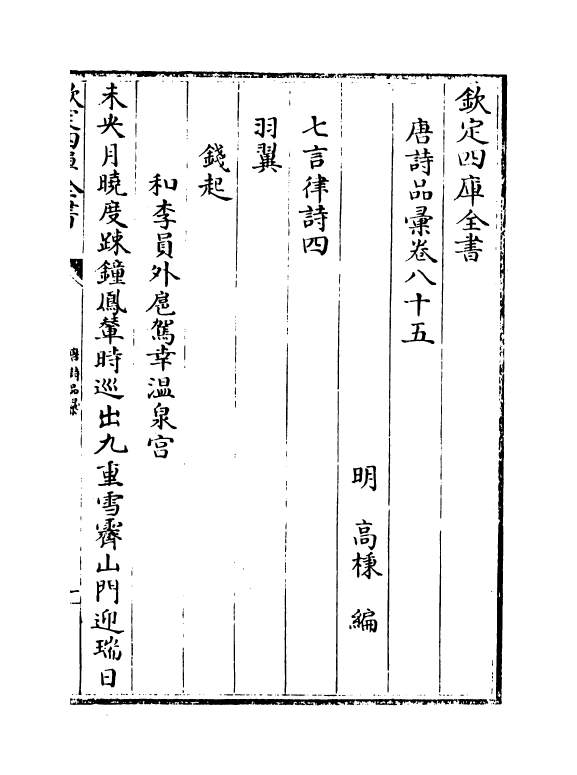 欽定四庫全書
唐詩品彚卷八十五
明 高棅 編
七言律詩四
羽翼
錢起
和李員外扈駕幸温泉宫
未央月曉度踈鐘鳳輦時巡出九重雪霽山門迎瑞日
欽定四庫全書
唐詩品彚